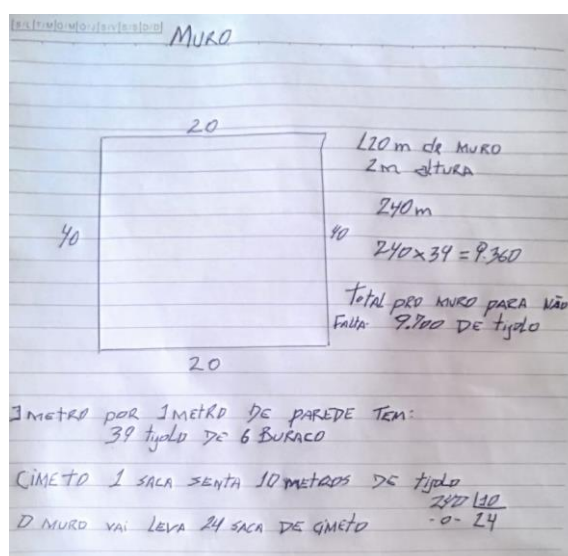 MURO
20
120 m de MURO
2m altura
40
240 m
40
240 x 39 = 9.360
Total PRO MURO PARA NÃO
FALTA 9.700 DE tijolo
20
1 METRO POR 1 METRO DE PAREDE TEM:
39 tijolo DE 6 BURACO
CIMETO 1 SACA SENTA 10 METROS DE tijolo
240 10
O MURO VAI LEVA 24 SACA DE CIMETO
-0- 24